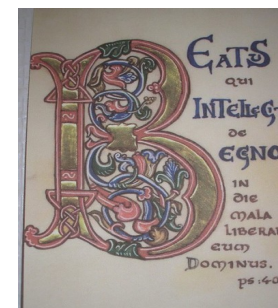 BEATS
QUI
INTELLEG-
DE
EGNO
IN
DIE
MALA
LIBERA
EUM
DOMINUS.
ps:40